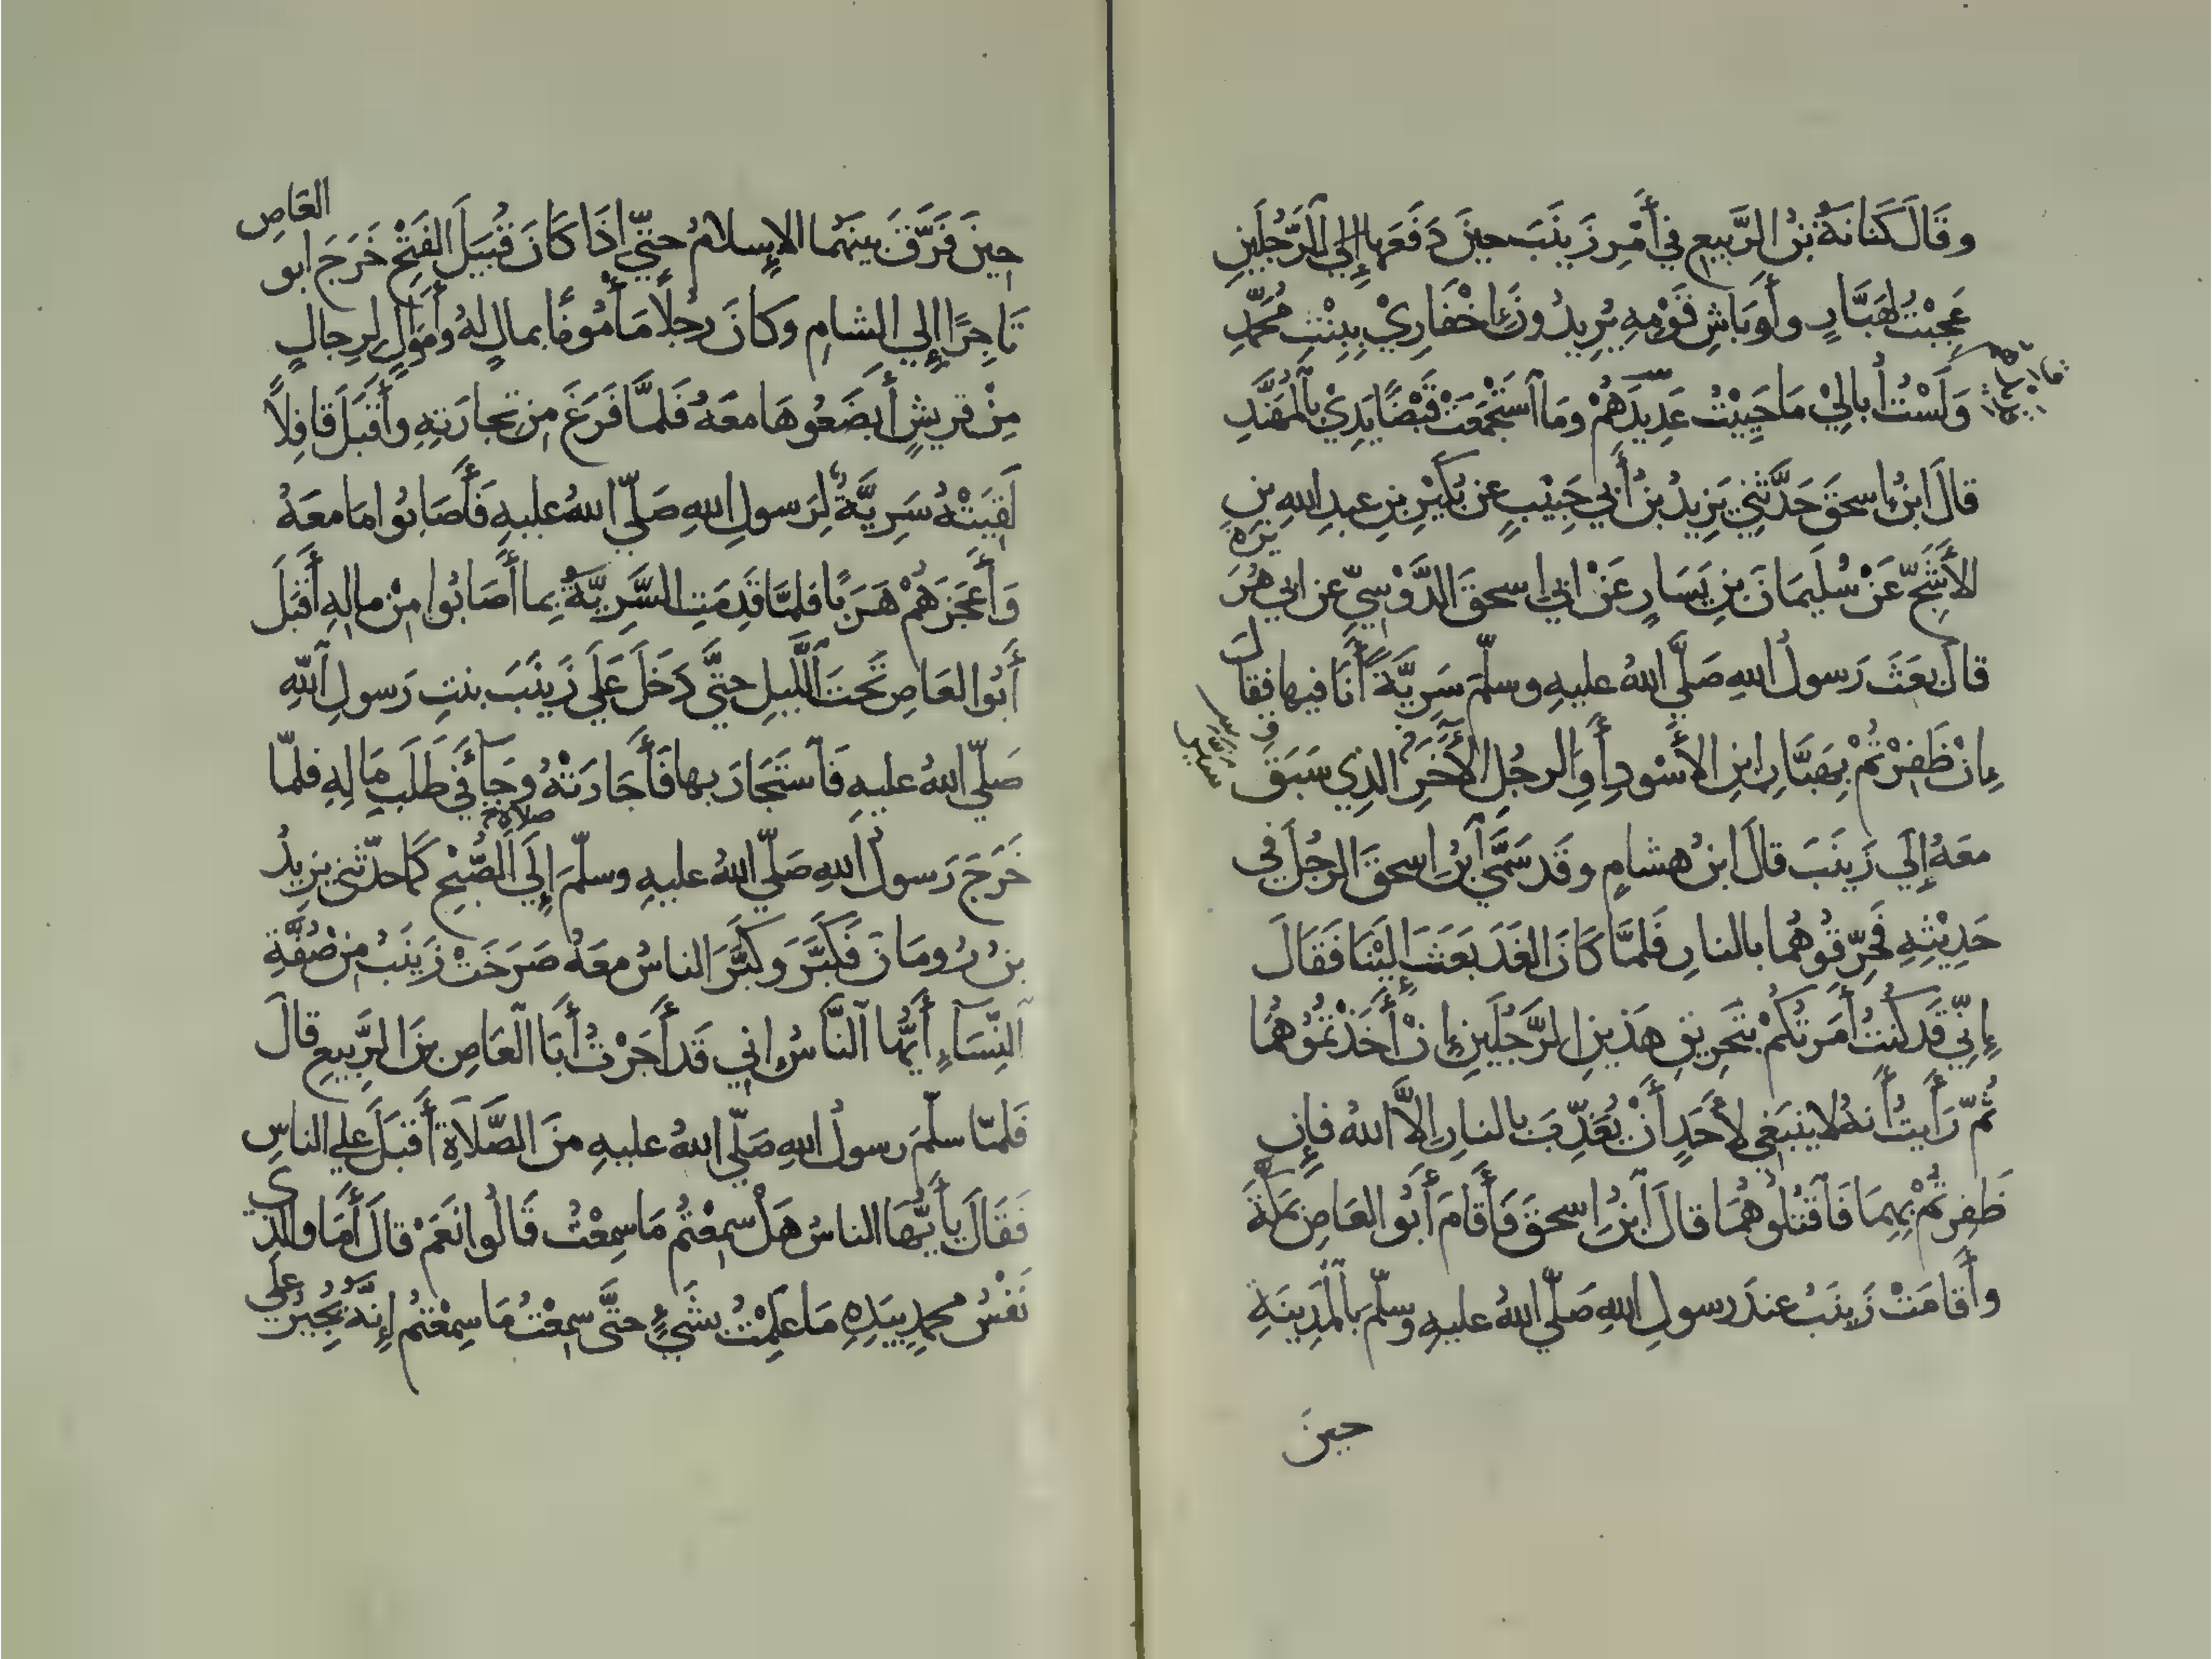 وقَالَ كنانةُ بنُ الرَّبيعِ في أَمْرِ زَينَبَ حينَ دَفَعَها إلي الرَّجُلَينِ
عَجِبْتُ لهَبَّارٍ وأَوبَاشِ قَوْمِهِ يُرِيدُونَ إِخْفَارِيْ بِبِنْتِ مُحَمَّدِ
وَلَسْتُ أُبالِيْ مَا حَيِيْتُ عَدِيدَهُمْ ومَا ٱستَجْمَعَتْ قَبْضًا يَدِيْ بالمُهَنَّدِ
قالَ ابنُ إسحقَ حَدَّثَنِي يَزِيدُ بنُ أَبي حَبِيْبٍ عن بُكَيْرِ بنِ عبدِ اللهِ بنِ
الأَشَجِّ عَنْ سُلَيمَانَ بنِ يَسَارٍ عَنْ ابي إسحقَ الدَّوْسيِّ عن ابي هُرَيرَةَ
قالَ بعَثَ رَسولُ اللهِ صَلَّي اللهُ عليهِ وسلّمَ سَرِيَّةً أَنَا فيها فقالَ
إنْ ظَفِرْتُمْ بِهَبَّارِ ابنِ الأَسْودِ أَوِ الرجُلِ الأَخَرِ الذِي سَبَقَ
معَهُ إلَي زَينَبَ قالَ ابنُ هشامٍ وقَد سَمَّي ٱبنُ إسحقَ الرجُلَ في
حَدِيْثِهِ فَحَرِّقُوهُما بالنارِ فَلمَّا كَانَ الغَدَ بَعَثَ إلَيْنَا فَقَالَ
إنِّي قَد كُنتُ أَمَرتُكُمْ بتَحرِيقِ هَذينِ الرَّجُلَينِ إنْ أَخَذْتُمُوهُمَا
ثُمّ رَأَيتُ أَنهُ لا يَنبَغي لأَحَدٍ أَنْ يُعَذِّبَ بالنارِ إلاَّ اللهُ فإن
ظَفِرتُمْ بِهِمَا فَٱقتُلُوهُمَا قالَ ٱبنُ إسحقَ فَأَقامَ أَبُو العَاصِ بمَكَّةَ
وأَقامَتْ زَينَبُ عندَ رسولِ اللهِ صَلَّي اللهُ عليهِ وسلّمَ بالْمَدِينَةِ
حينَ
حِينَ فَرَّقَ بينَهُما الإسلامُ حتيّ إذَا كَانَ قُبَيلَ الفَتْحِ خَرَجَ ابو العَاصِ
تَاجِرًا إلي الشامِ وكانَ رجُلاً مَأْمُونًا بمالٍ لهُ وأَموَالٍ لرِجالٍ
مِنْ قريشٍ أَبضَعُوهَا معَهُ فَلمَّا فَرَغَ مِن تِجارَتِهِ وأَقْبَلَ قافِلاً
لَقِيَتْهُ سَرِيَّةٌ لِرَسولِ اللهِ صَلّي اللهُ عليهِ فَأَصَابُوا مَا معَهُ
وَأَعجَزَهُمْ هَرَبًا فلمَّا قَدِمَتِ السَّرِيَّةُ بِما أَصَابُوا مِنْ مالِهِ أَقبَلَ
أَبُو العَاصِ تَحتَ ٱللَّيلِ حتَّي دَخَلَ عَلَي زَينَبَ بنتِ رَسولِ ٱللهِ
صَلّي اللهُ عليهِ فَٱستَجَارَ بها فَأَجَارَتْهُ وجَآءَ في طَلَبِ مَالِهِ فلمَّا
خَرَجَ رَسولُ اللهِ صَلّي اللهُ عليهِ وسلّمَ إلَي صلاة الصُّبْحِ كَمَا حدّثني يزِيدُ
بنُ رُومَانَ فَكَبَّرَ وكَبَّرَ الناسُ معَهُ صَرَخَتْ زَينَبُ مِن صُفَّةِ
ٱلنِّسَاءِ أَيُّها ٱلنَّاسُ إني قَد أَجَرْتُ أَبَا ٱلعَاصِ بنَ الرَّبيعِ قالَ
فَلمّا سلّمَ رسولُ اللهِ صَلّي اللهُ عليهِ منَ الصَّلاَةِ أَقبَلَ علي الناسِ
فَقَالَ يأَيُّهَا الناسُ هَلْ سمِعْتُم مَا سمِعْتُ قَالُوا نَعَمْ قالَ أَمَا والذِي
نَفْسُ محمدٍ بيَدِهِ مَا عَلِمْتُ بشَيْءٍ حتَّي سمِعْتُ مَا سمِعْتُم إنَّهُ يُجِيرُ عَلَي